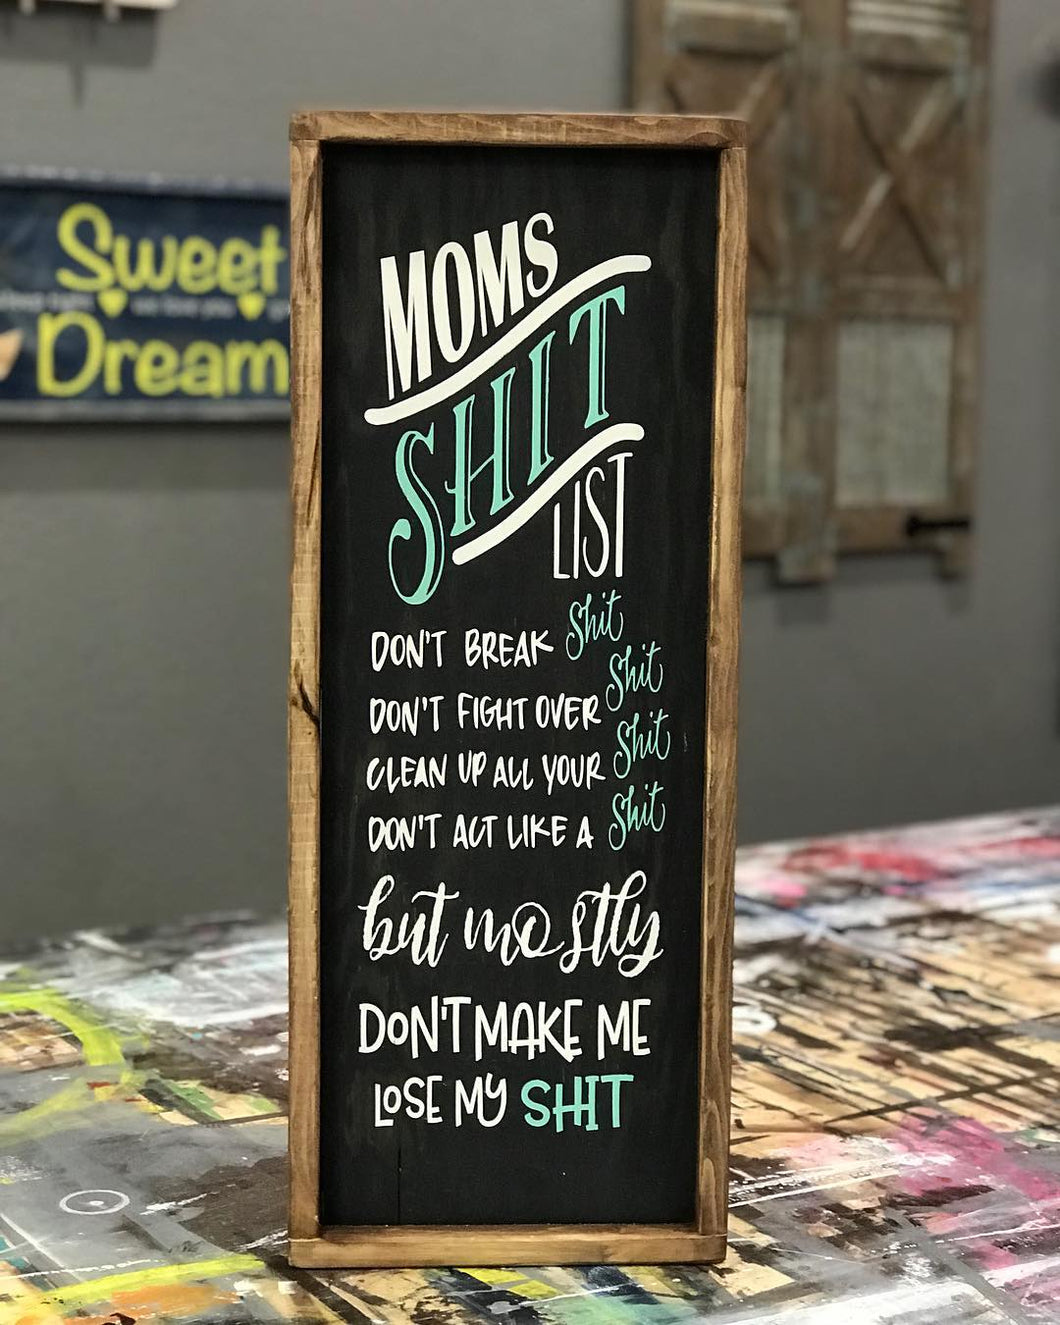 MOMS
SHIT
LIST
DON'T BREAK Shit
DON'T FIGHT OVER Shit
CLEAN UP ALL YOUR Shit
DON'T ACT LIKE A Shit
but mostly
DON'T MAKE ME
LOSE MY SHIT
Sweet
we love you
Dream